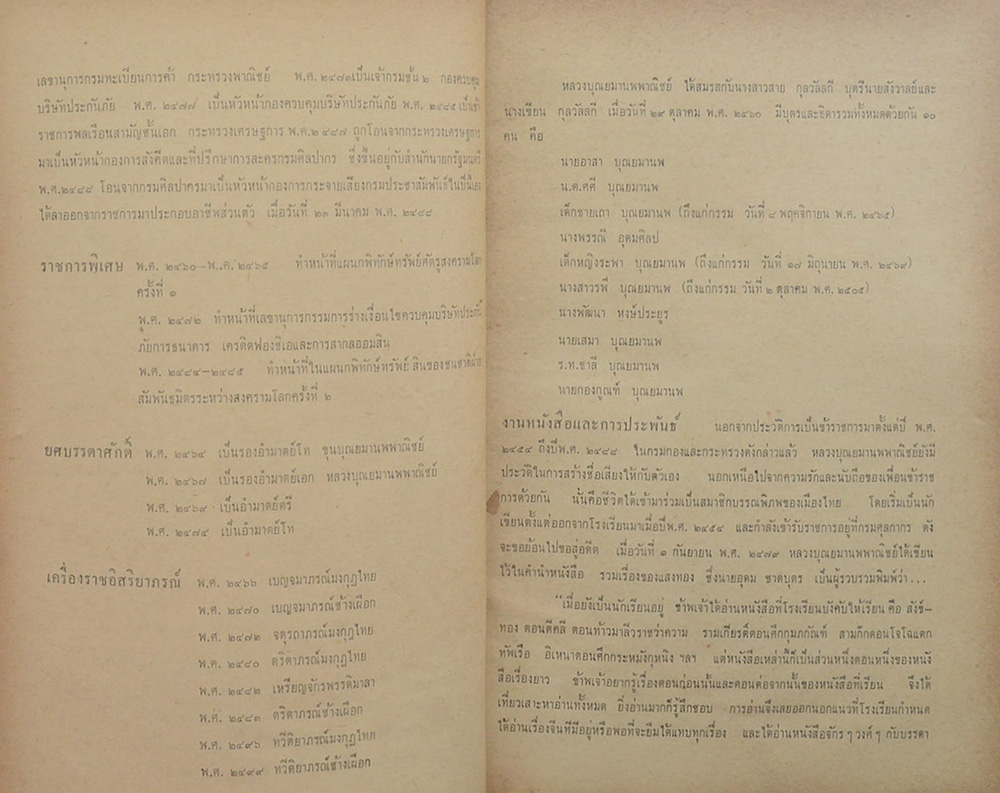 เลขานุการกรมทะเบียนการค้า กระทรวงพาณิชย์ พ.ศ. ๒๔๗๓เป็นเจ้ากรมชั้น ๒ กองควบคุม
บริษัทประกันภัย พ.ศ. ๒๔๗๗ เป็นหัวหน้ากองควบคุมบริษัทประกันภัย พ.ศ. ๒๔๘๕ เป็นข้า
ราชการพลเรือนสามัญชั้นเอก กระทรวงเศรษฐการ พ.ศ.๒๔๘๗ ถูกโอนจากกระทรวงเศรษฐการ
มาเป็นหัวหน้ากองการสังคีตและที่ปรึกษาการละครกรมศิลปากร ซึ่งขึ้นอยู่กับสำนักนายกรัฐมนตรี
พ.ศ.๒๔๘๘ โอนจากกรมศิลปากรมาเป็นหัวหน้ากองการกระจายเสียงกรมประชาสัมพันธ์ในปีนี้เอง
ได้ลาออกจากราชการมาประกอบอาชีพส่วนตัว เมื่อวันที่ ๒๓ มีนาคม พ.ศ. ๒๔๘๘
ราชการพิเศษ พ.ศ. ๒๔๖๐–พ.ศ. ๒๔๖๕ ทำหน้าที่แผนกพิทักษ์ทรัพย์ศัตรูสงครามโลก
ครั้งที่ ๑
พ.ศ. ๒๔๗๒ ทำหน้าที่เลขานุการกรรมการร่างเงื่อนไขควบคุมบริษัทประกัน
ภัยการธนาคาร เครดิตฟองซิเอและการสากลออมสิน
พ.ศ. ๒๔๘๔–๒๔๘๕ ทำหน้าที่ในแผนกพิทักษ์ทรัพย์ สินของชนชาติฝ่าย
สัมพันธมิตรระหว่างสงครามโลกครั้งที่ ๒
ยศบรรดาศักดิ์ พ.ศ. ๒๔๖๔ เป็นรองอำมาตย์โท ขุนบุณยมานพพาณิชย์
พ.ศ. ๒๔๖๗ เป็นรองอำมาตย์เอก หลวงบุณยมานพพาณิชย์
พ.ศ. ๒๔๖๙ เป็นอำมาตย์ตรี
พ.ศ. ๒๔๗๔ เป็นอำมาตย์โท
เครื่องราชอิสริยาภรณ์ พ.ศ. ๒๔๖๖ เบญจมาภรณ์มงกุฎไทย
พ.ศ. ๒๔๗๐ เบญจมาภรณ์ช้างเผือก
พ.ศ. ๒๔๗๒ จตุรถาภรณ์มงกุฎไทย
พ.ศ. ๒๔๘๐ ตริตาภรณ์มงกุฎไทย
พ.ศ. ๒๔๘๒ เหรียญจักรพรรดิมาลา
พ.ศ. ๒๔๘๓ ตริตาภรณ์ช้างเผือก
พ.ศ. ๒๔๙๖ ทวีติยาภรณ์มงกุฎไทย
พ.ศ. ๒๔๙๙ ทวีติยาภรณ์ช้างเผือก
หลวงบุณยมานพพาณิชย์ ได้สมรสกับนางสาวสาย กุลวัลลกี บุตรีนายสังวาลย์และ
นางเขียน กุลวัลลกี เมื่อวันที่ ๒๙ ตุลาคม พ.ศ. ๒๔๖๐ มีบุตรและธิดารวมทั้งหมดด้วยกัน ๑๐
คน คือ
นายอาสา บุณยมานพ
น.ต.ศศี บุณยมานพ
เด็กชายเถา บุณยมานพ (ถึงแก่กรรม วันที่ ๘ พฤศจิกายน พ.ศ. ๒๔๖๕)
นางพรรณี อุดมศิลป
เด็กหญิงระพา บุณยมานพ (ถึงแก่กรรม วันที่ ๑๗ มิถุนายน พ.ศ. ๒๔๖๙)
นางสาวรพี บุณยมานพ (ถึงแก่กรรม วันที่ ๒ ตุลาคม พ.ศ. ๒๕๐๕)
นางพัฒนา หงษ์ประยูร
นายเสมา บุณยมานพ
ร.ท.ชาลี บุณยมานพ
นายกองกูณฑ์ บุณยมานพ
งานหนังสือและการประพันธ์ นอกจากประวัติการเป็นข้าราชการมาตั้งแต่ปี พ.ศ.
๒๔๕๔ ถึงปีพ.ศ. ๒๔๘๘ ในกรมกองและกระทรวงดังกล่าวแล้ว หลวงบุณยมานพพาณิชย์ยังมี
ประวัติในการสร้างชื่อเสียงให้กับตัวเอง นอกเหนือไปจากความรักและนับถือของเพื่อนข้าราช
การด้วยกัน นั้นคือชีวิตได้เข้ามาร่วมเป็นสมาชิกบรรณพิภพของเมืองไทย โดยเริ่มเป็นนัก
เขียนตั้งแต่ออกจากโรงเรียนมาเมื่อปีพ.ศ. ๒๔๕๔ และกำลังเข้ารับราชการอยู่ที่กรมศุลกากร ดัง
จะขอย้อนไปขอสู่อดีต เมื่อวันที่ ๑ กันยายน พ.ศ. ๒๔๗๙ หลวงบุณยมานพพาณิชย์ได้เขียน
ไว้ในคำนำหนังสือ รวมเรื่องของแสงทอง ซึ่งนายอุดม ชาตบุตร เป็นผู้รวบรวมพิมพ์ว่า...
“เมื่อยังเป็นนักเรียนอยู่ ข้าพเจ้าได้อ่านหนังสือที่โรงเรียนบังคับให้เรียน คือ สังข์–
ทอง ตอนตีคลี ตอนท้าวมาลีวราชว่าความ รามเกียรติ์ตอนศึกกุมภกัณฑ์ สามก๊กตอนโจโฉแตก
ทัพเรือ อิเหนาตอนศึกกระหมังกุหนิง ฯลฯ แต่หนังสือเหล่านี้ก็เป็นส่วนหนึ่งตอนหนึ่งของหนัง
สือเรื่องยาว ข้าพเจ้าอยากรู้เรื่องตอนก่อนนั้นและตอนต่อจากนั้นของหนังสือที่เรียน จึงได้
เที่ยวเสาะหาอ่านทั้งหมด ยิ่งอ่านมากก็รู้สึกชอบ การอ่านจึงเลยออกนอกแนวที่โรงเรียนกำหนด
ได้อ่านเรื่องจีนที่มีอยู่หรือพอที่จะยืมได้แทบทุกเรื่อง และได้อ่านหนังสือจักร ๆ วงศ์ ๆ กับบรรดา